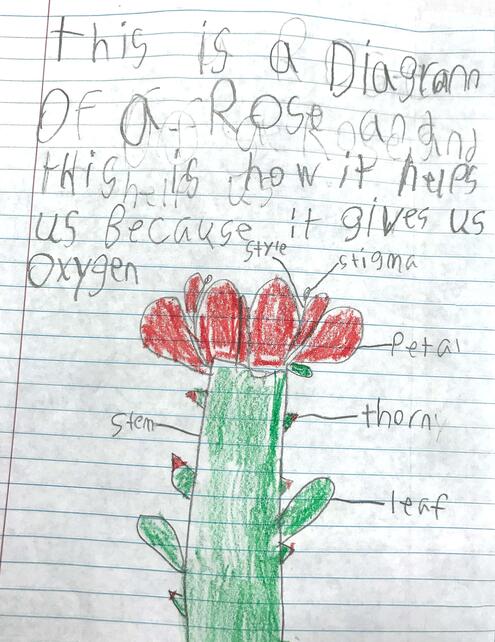 this is a Diagram
OF a Rose and
this is how it helps
us Because it gives us
Oxygen
style
stigma
Petal
stem
thorny
leaf